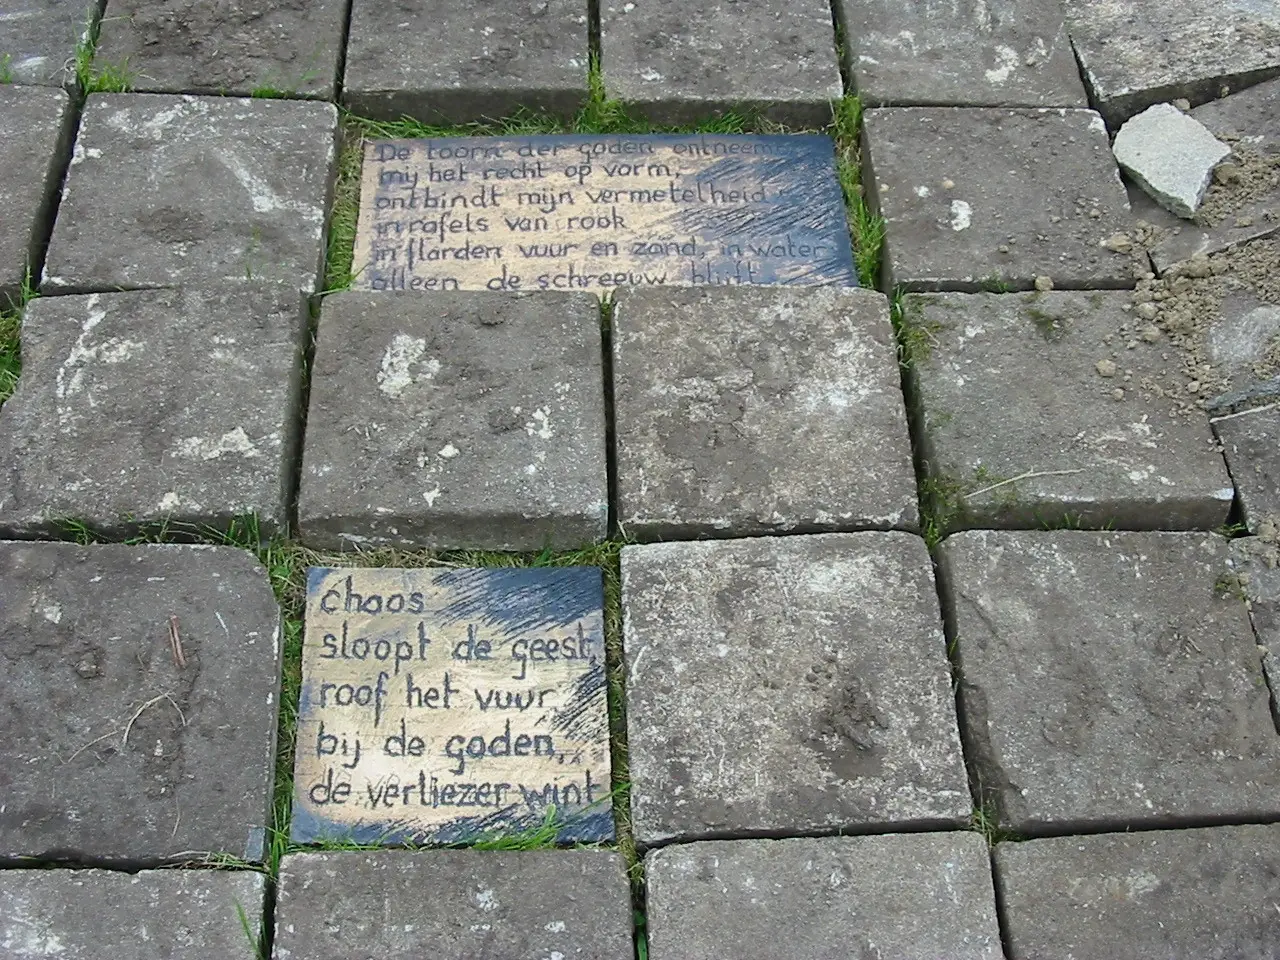 De toorn der goden ontneemt
mij het recht op vorm,
ontbindt mijn vermetelheid
in rafels van rook
in flarden vuur en zand, in water
alleen de schreeuw blijft.
chaos
sloopt de geest,
roof het vuur
bij de goden,
de verliezer wint